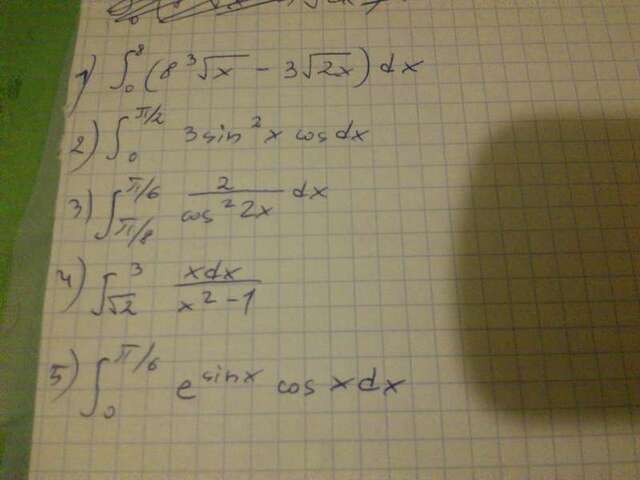 1) ∫₀⁸ (8³√x - 3√2x) dx
2) ∫₀^π/2 3sin²x cosdx
3) ∫_π/8^π/6 2/cos²2x dx
4) ∫_√2^3 xdx/x²-1
5) ∫₀^π/6 e^sinx cosxdx